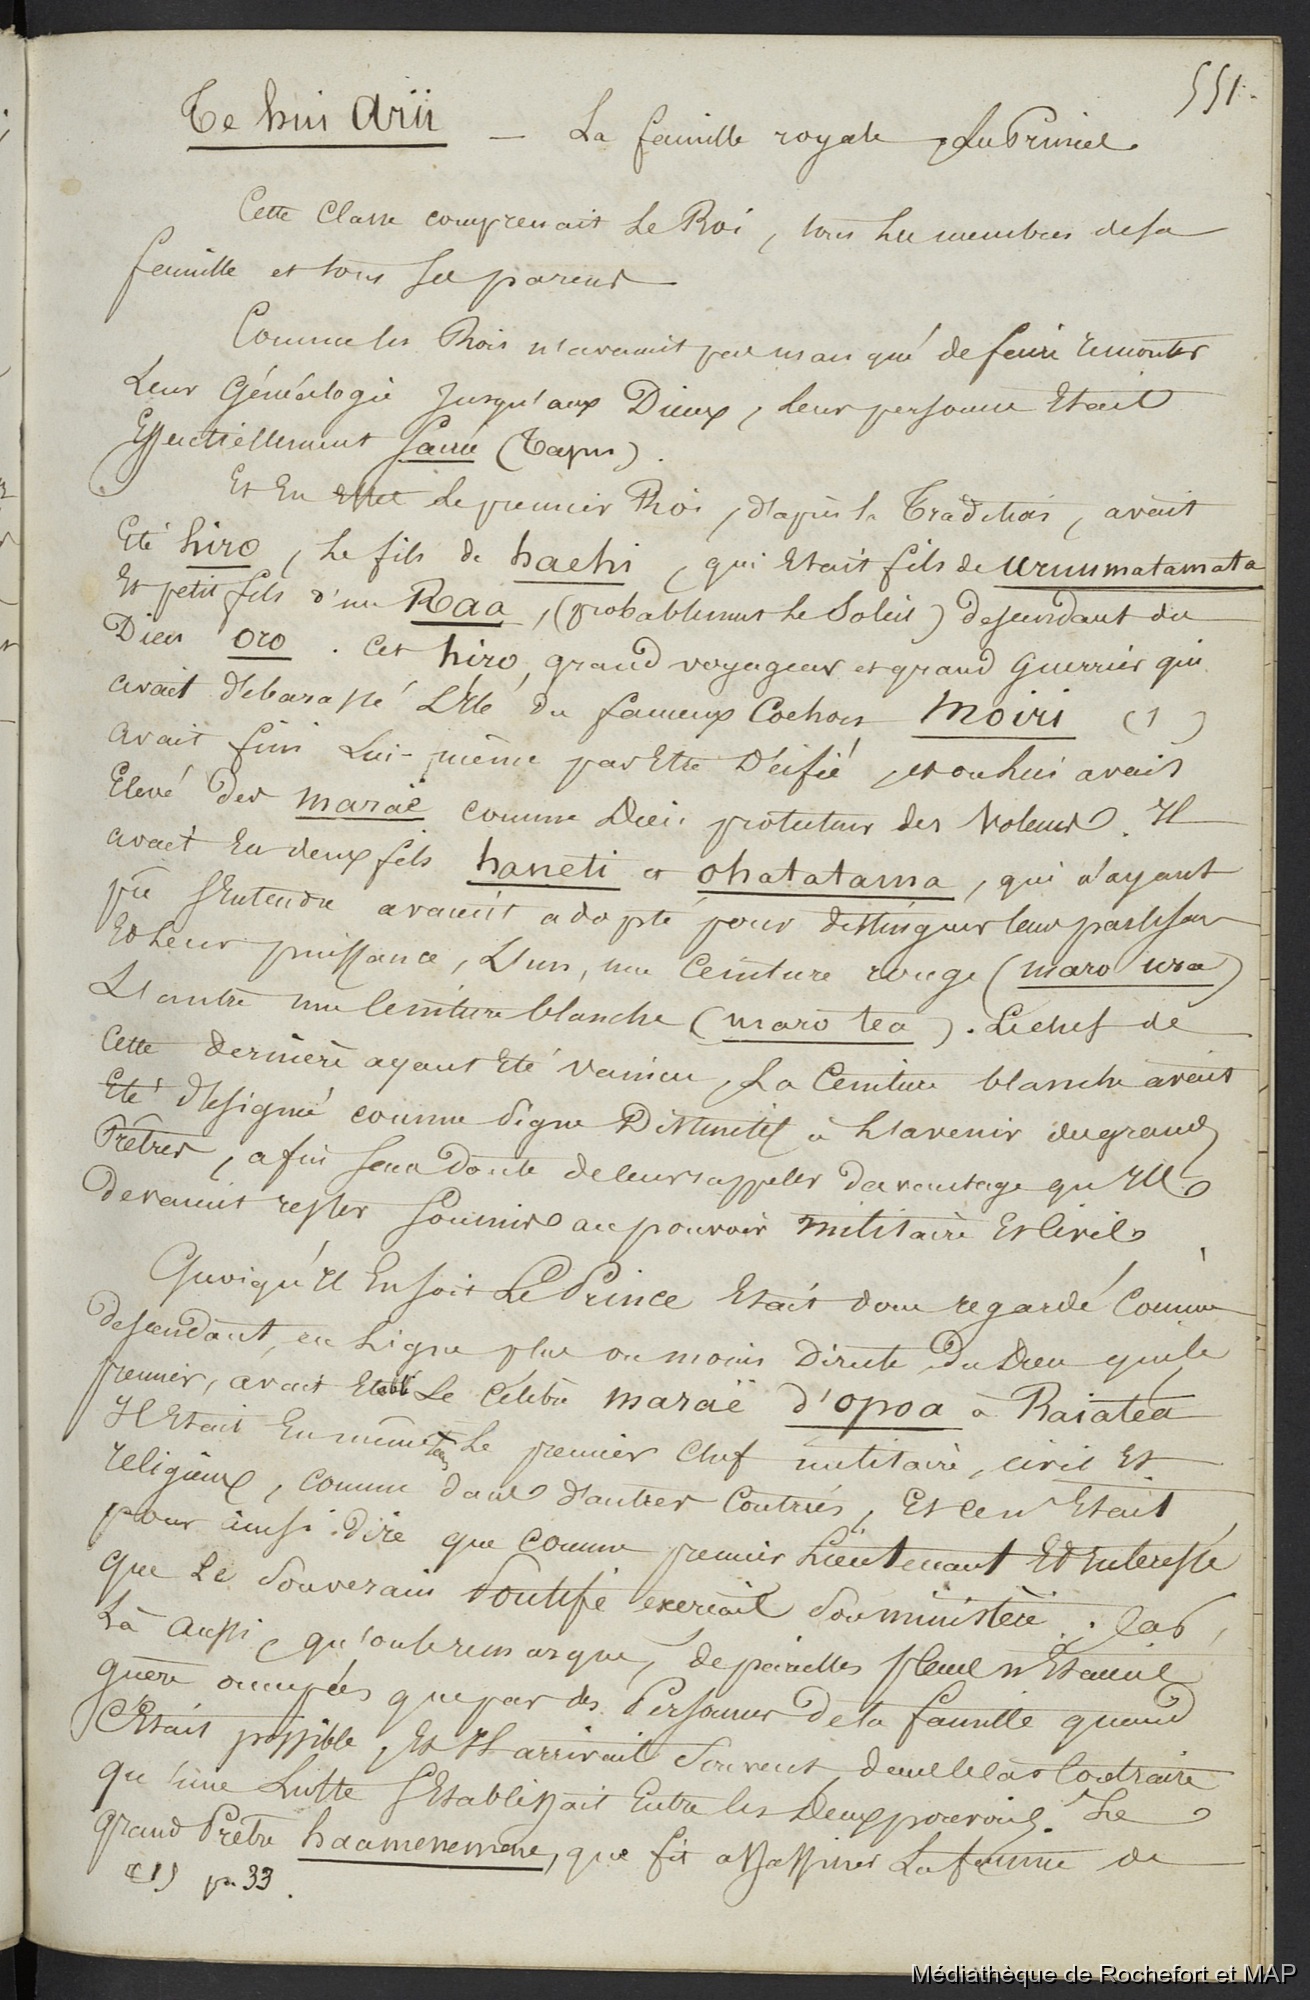 551.
Te hui Arii — La famille royale, les Princes.
Cette Classe comprenait le Roi, tous les membres de sa
famille et tous ses parens
Comme les Rois n'avaient pas manqué de faire remonter
leur Généalogie jusqu'aux Dieux, leur personne Etait
Essentiellement sacrée (Tapu).
Et En Effet le premier Roi, d'après la Tradition, avait
Eté hiro, le fils de haehi, qui Etait fils de uruumatamata
Et petit fils d'un Raa, (probablement le Soleil) descendant du
Dieu oro. Cet hiro, grand voyageur et grand Guerrier qui
avait débarassé L'Ile du fameux Cochon Moiri (1)
avait fini Lui-même par Etre Déifié, et on lui avait
Elevé des maraë comme Dieu protecteur des Voleurs. Il
avait Eu deux fils haneti et ohatatama, qui n'ayant
pu s'Entendre avaient adopté pour distinguer leurs partisans
Et leur puissance, L'un, une Ceinture rouge (maro ura)
L'autre une Ceinture blanche (maro tea). Le chef de
Cette dernière ayant Eté vaincu, La Ceinture blanche avait
Eté désignée comme Signe Distinctif à L'avenir des grands
Prêtres, afin sans doute de leur rappeler davantage qu'Ils
devaient rester soumis au pouvoir militaire Et Civil.
Quoiqu'Il En soit Le Prince Etait donc regardé Comme
descendant, en Ligne plus ou moins Directe, du Dieu qui le
premier, avait Etabli Le Célèbre maraë d'opoa à Raiatea
Il Etait En même tems Le premier Chef militaire, civil Et
religieux, comme dans d'autres Contrées, Et ce n'Etait
pour ainsi dire que comme premier Lieutenant Et Intéressé
que Le Souverain Pontife exerçait Son ministère. Car,
Là aussi, qu'on le remarque, de pareilles places n'Etaient
guère occupées que par des Personnes de la famille quand
C'Etait possible, Et Il arrivait Souvent, dans le cas Contraire
qu'une Lutte s'Etablissait Entre les Deux pouvoirs. Le
Grand Prêtre haamenemene, que fit assassiner La femme de
(1) p. 33.
Médiathèque de Rochefort et MAP